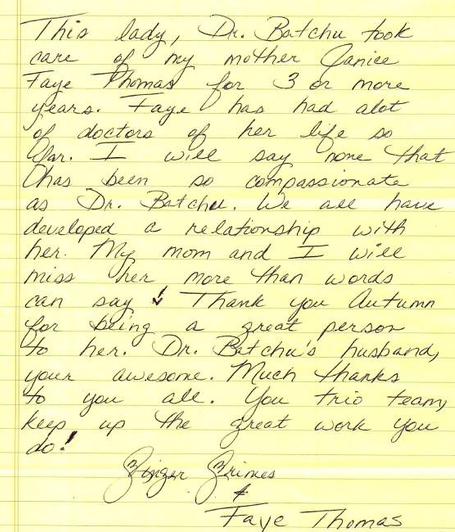 This lady, Dr. Batchu took
care of my mother Janice
Faye Thomas for 3 or more
years. Faye has had alot
of doctors of her life so
far. I will say none that
has been so compassionate
as Dr. Batchu. We all have
developed a relationship with
her. My mom and I will
miss her more than words
can say! Thank you Autumn
for being a great person
to her. Dr. Batchu's husband,
your awesome. Much thanks
to you all. You trio team,
keep up the great work you
do!
Ginger Grimes
&
Faye Thomas